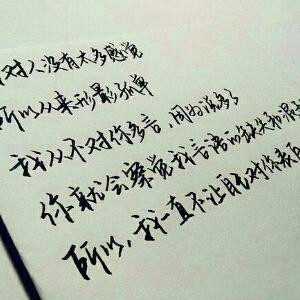 对人没有太多感觉
所以从来形影孤单
我从不对你多言,因为说多了
你就会察觉我言语的缺失和很
所以,我一直不让自己对你表